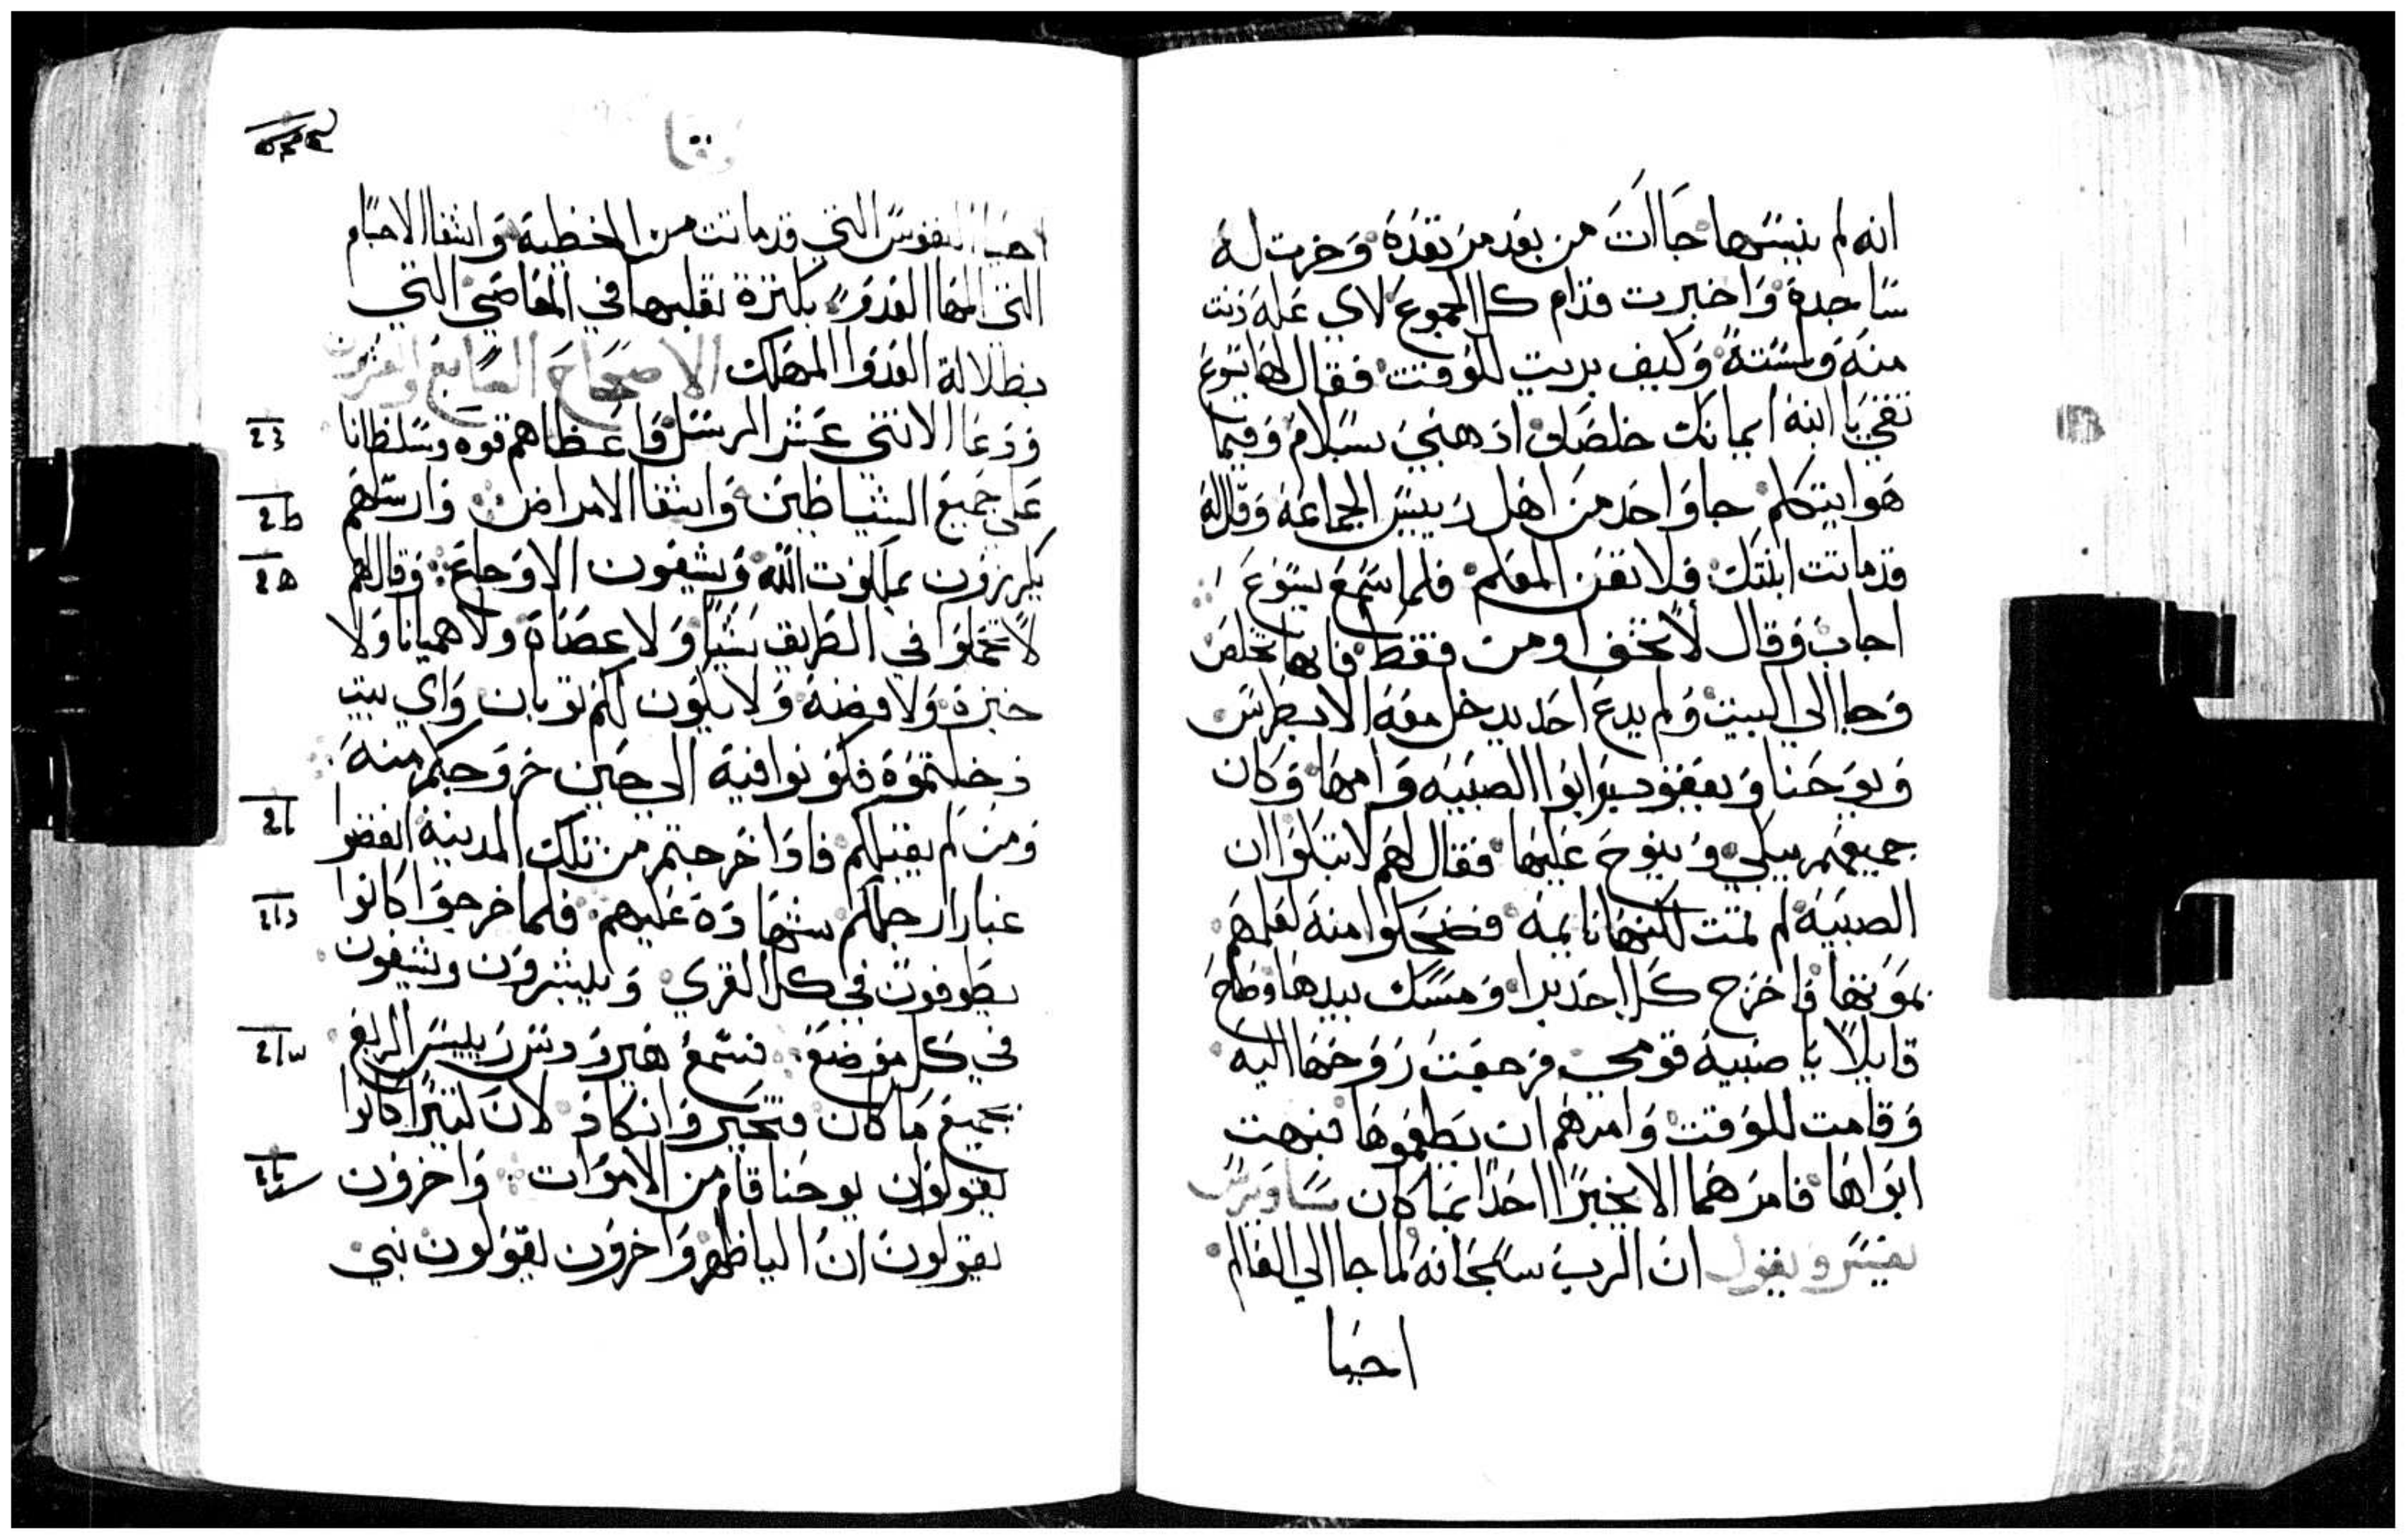 انه لم ينساها جاات من بعد مرتعده وخرت له
ساجدة واخبرت قدام كل الجموع لاي عله دنت
منه ولمسته وكيف بريت للوقت فقال لها يسوع
ثقي يا ابنة ايمانك خلصك اذهبي بسلام وفيما
هوا يتكلم جا واحد من اهل رييس الجماعة وقال له
قد ماتت ابنتك فلا تعن المعلم فلما سمع يسوع
اجاب وقال لا تخف اومن فقط فانها تخلص
وجا الي البيت ولم يدع احد يدخل معه الا بطرس
ويوحنا ويعقوب وابوا الصبيه وامها وكان
جميعهم يبكي وينوح عليها فقال لهم لا تبكوا ان
الصبية لم تمت لكنها نايمة فضحكوا منه لعلمهم
بموتها فاخرج كل احد برا ومسك بيدها وصاح
قايلا يا صبية قومي فرجعت روحها اليه
وقامت للوقت وامرهم ان يطعموها فبهت
ابواها فامرهما الا يخبرا احدا بما كان ساويرس
يفسر ويقول ان الرب سبحانه لما جا الي العالم
احيا
لوقا
احيا النفوس التي قد ماتت من الخطية واشفا الاجسام
التي المها العدو بكثرة تقلبها في المعاصي التي
بظلالة العدوا المهلك الاصحاح السابع والعشرون
ودعا الاثني عشر الرسل واعطاهم قوه وسلطانا
علي جميع الشياطين واشفا الامراض وارسلهم
يكرزون بملكوت الله ويشفون الاوجاع وقال لهم
لا تحملوا في الطريق شيا ولا عصاة ولا هميانا ولا
خبزة ولا فضة ولا يكون لكم ثوبان واي بيت
دخلتموه فكونوا فيه الي حين خروجكم منه
ومن لم يقبلكم فاذا خرجتم من تلك المدينة انفضوا
غبار ارجلكم شهادة عليهم فلما خرجوا كانوا
يطوفون في كل القري ويبشرون ويشفون
في كل موضع فسمع هيرودس رييس الربع
بجميع ما كان فتحير وانكاد لان كثيرا كانوا
يقولون يوحنا قام من الاموات واخرون
يقولون ان اليا ظهر واخرون يقولون نبي